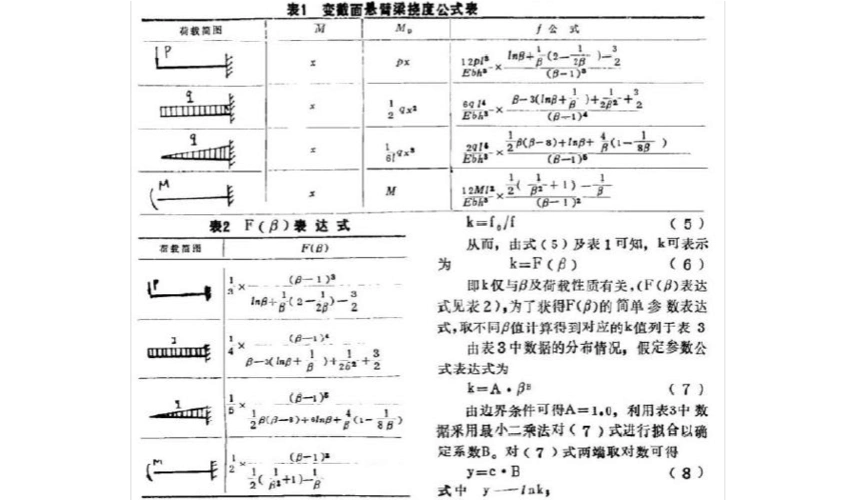 表1 变截面悬臂梁挠度公式表
荷载简图 M̄ Mₚ f 公 式
P x px 12pl³/Ebh³ × (lnβ+1/β(2—1/2β)—3/2)/(β—1)³
q x 1/2 qx² 6ql⁴/Ebh³ × (β—3(lnβ+1/β)+1/2β²+3/2)/(β—1)⁴
q x 1/6l qx³ 2ql⁴/Ebh³ × (1/2β(β—8)+lnβ+4/β(1—1/8β))/(β—1)⁵
M x M 12Ml²/Ebh³ × (1/2(1/β²+1)—1/β)/(β—1)²
表2 F(β)表 达 式
荷载简图 F(β)
P 1/3 × (β—1)³/(lnβ+1/β(2—1/2β)—3/2)
1/4 × (β—1)⁴/(β—3(lnβ+1/β)+1/2β²+3/2)
q 1/5 × (β—1)⁵/(1/2β(β—8)+6lnβ+4/β(1—1/8β))
M 1/2 × (β—1)²/(1/2(1/β²+1)—1/β)
k=f₀/f (5)
从而,由式(5)及表1可知,k可表示
为 k=F(β) (6)
即k仅与β及荷载性质有关,(F(β)表达
式见表2),为了获得F(β)的简单参数表达
式,取不同β值计算得到对应的k值列于表 3
由表3中数据的分布情况,假定参数公
式表达式为
k=A·βᴮ (7)
由边界条件可得A=1.0,利用表3中数
据采用最小二乘法对(7)式进行拟合以确
定系数B。对(7)式两端取对数可得
y=c·B (8)
式中 y——lnk,